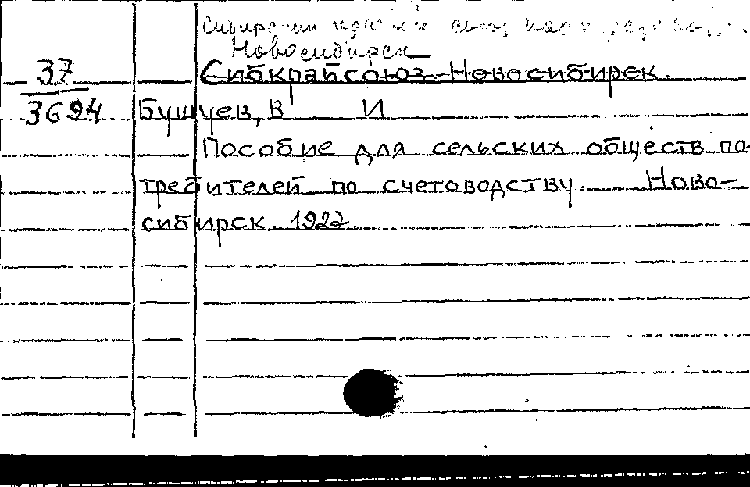 Новосибирск
37 Сибкрайсоюз-Новосибирск.
3694 Бушуев, В И
Пособие для сельских обществ по-
требителей по счетоводству. Ново-
сибирск 1927